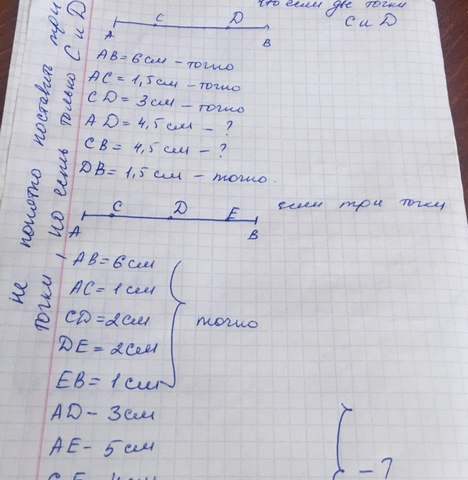 что если две точки
C и D
A C D B
AB = 6 см - точно
AC = 1,5 см - точно
CD = 3 см - точно
AD = 4,5 см - ?
CB = 4,5 см - ?
DB = 1,5 см - точно.
если три точки
A C D E B
AB = 6 см
AC = 1 см
CD = 2 см
DE = 2 см
EB = 1 см
точно
AD - 3 см
AE - 5 см
- ?
не понятно поставить три
точки, но есть только C и D